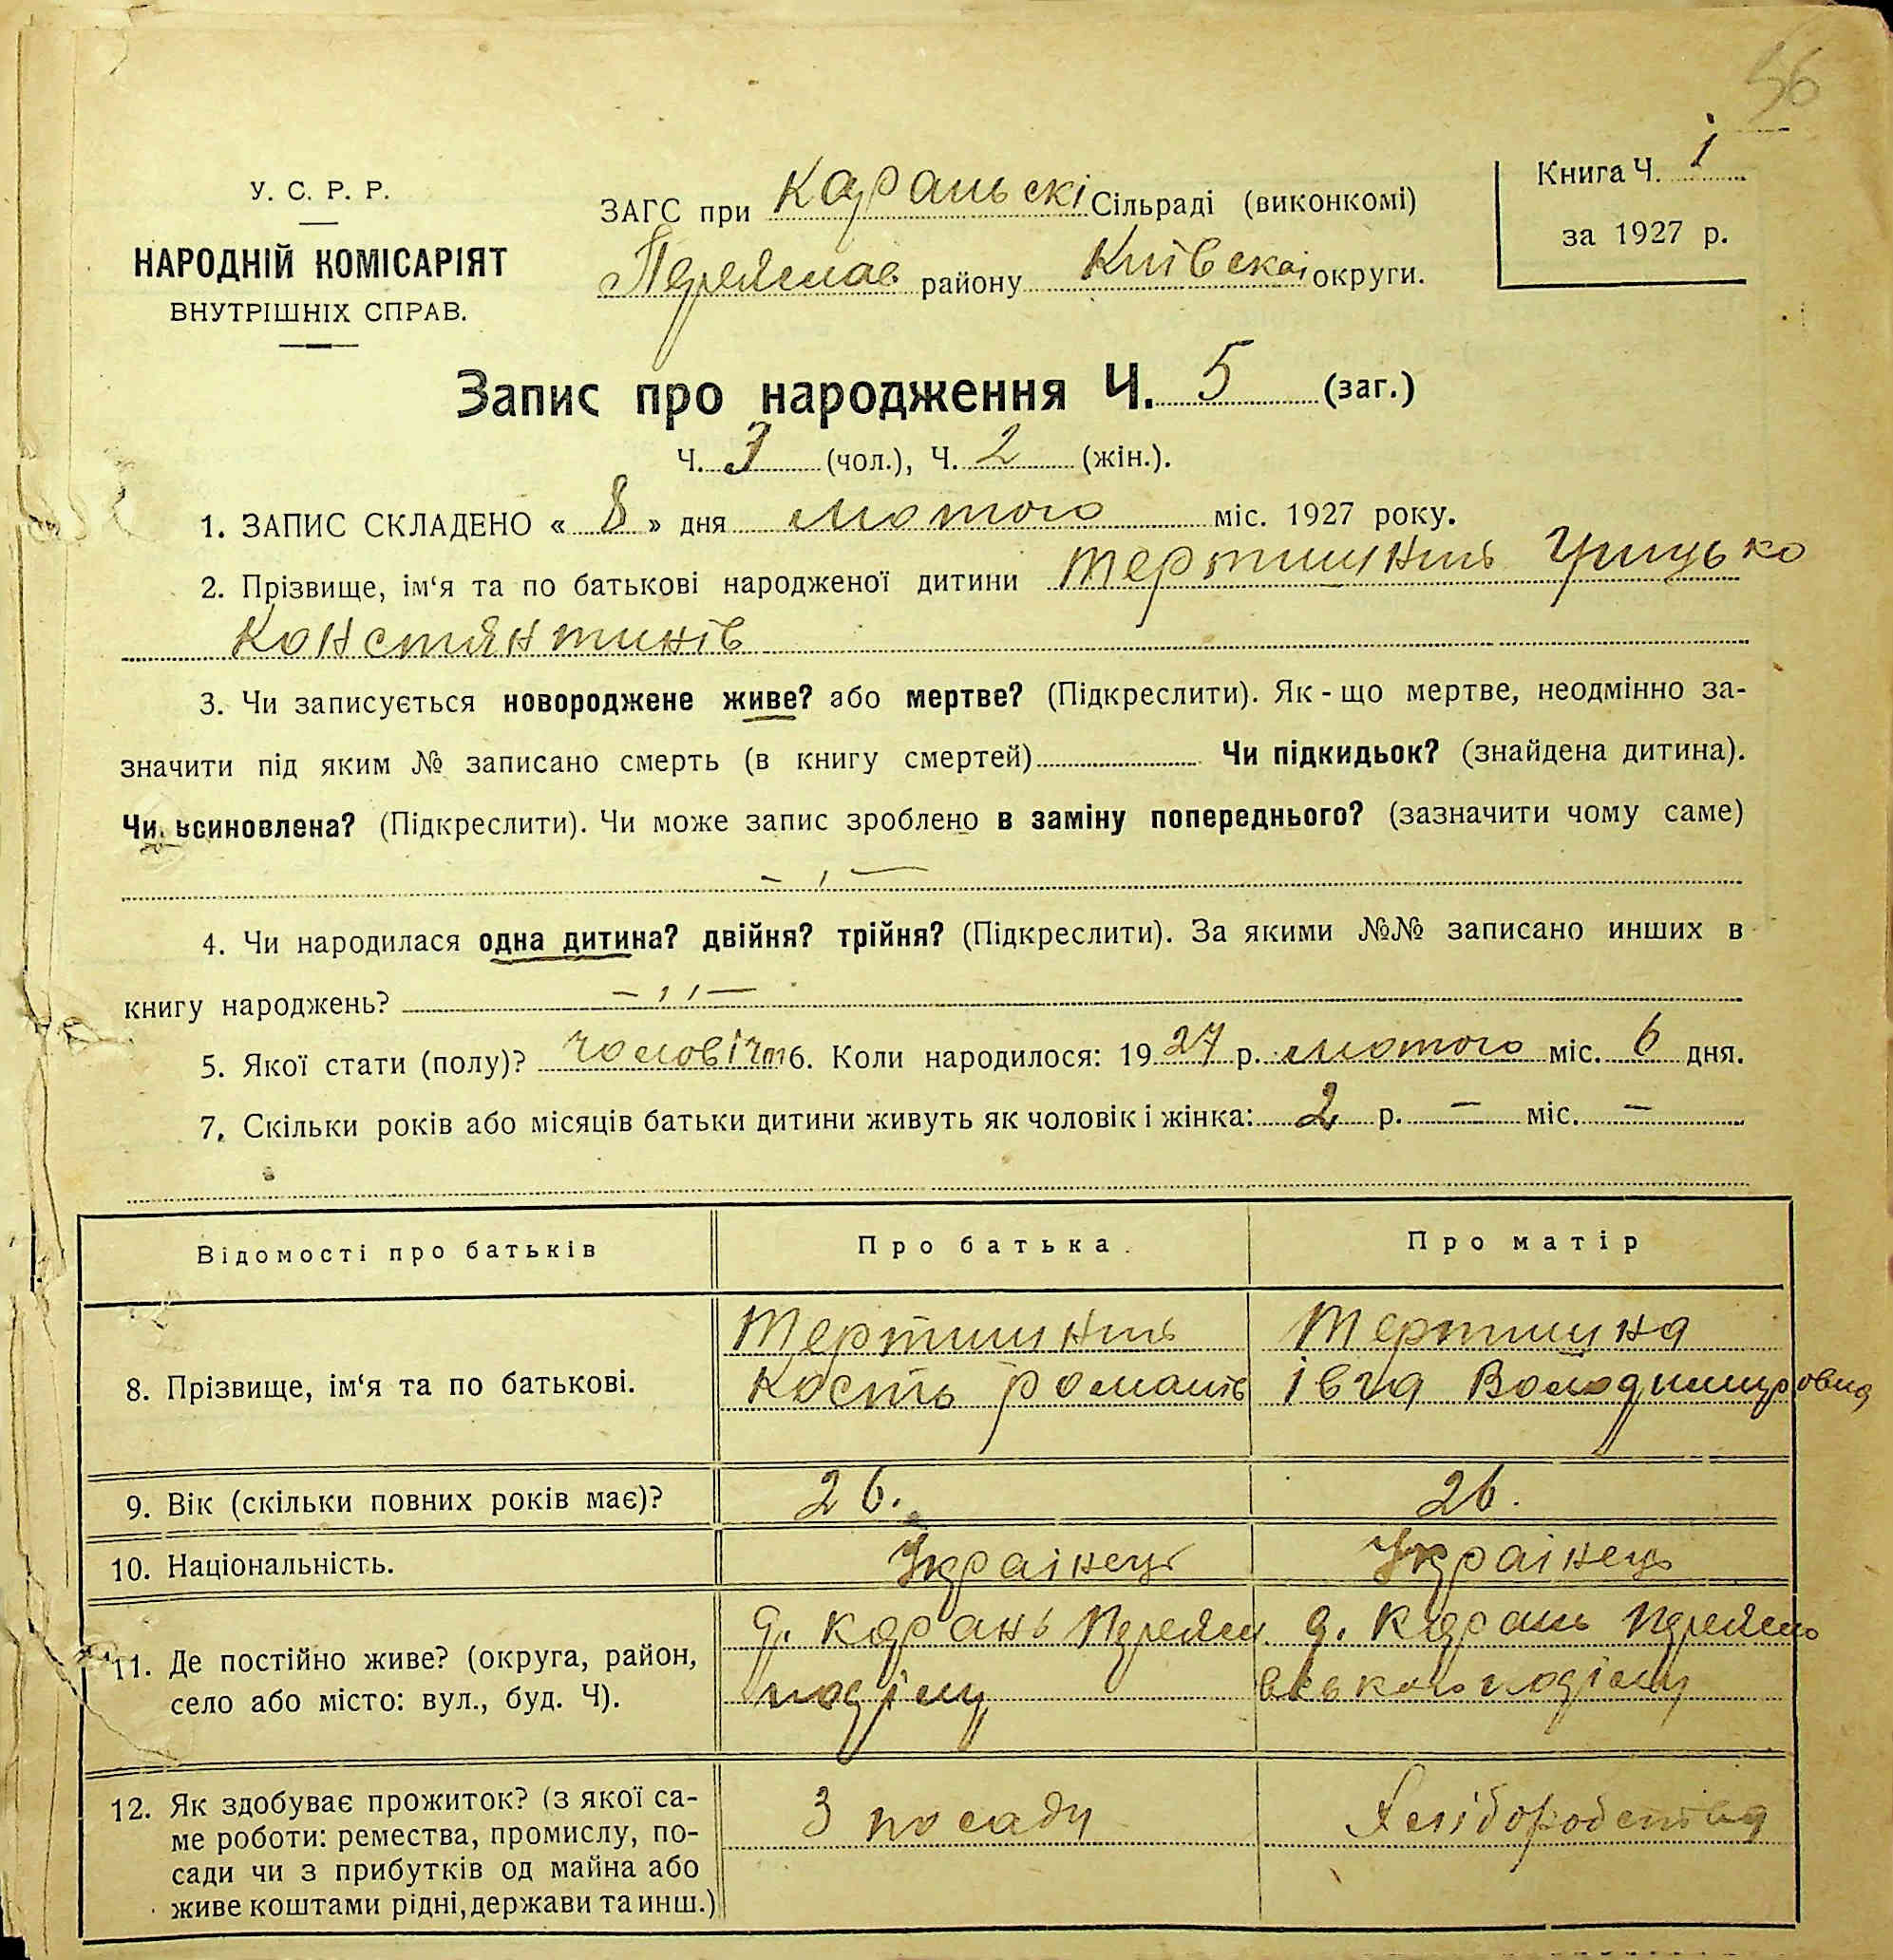 56
У. С. Р. Р.
НАРОДНІЙ КОМІСАРІЯТ
ВНУТРІШНІХ СПРАВ.
ЗАГС при Караньскі Сільраді (виконкомі)
Переяслав району Київскоі округи.
Книга Ч. 1
за 1927 р.
Запис про народження Ч. 5 (заг.)
Ч. 3 (чол.), Ч. 2 (жін.).
1. ЗАПИС СКЛАДЕНО « 8 » дня лютого міс. 1927 року.
2. Прізвище, ім‘я та по батькові народженої дитини Тертишний Грицько
Константинів
3. Чи записується новороджене живе? або мертве? (Підкреслити). Як-що мертве, неодмінно за-
значити під яким № записано смерть (в книгу смертей) Чи підкидьок? (знайдена дитина).
Чи всиновлена? (Підкреслити). Чи може запис зроблено в заміну попереднього? (зазначити чому саме)
4. Чи народилася одна дитина? двійня? трійня? (Підкреслити). За якими №№ записано инших в
книгу народжень? – ,, –
5. Якої стати (полу)? чоловічт 6. Коли народилося: 1927 р. лютого міс. 6 дня.
7. Скільки років або місяців батьки дитини живуть як чоловік і жінка: 2 р. – міс. –
Відомості про батьків Про батька. Про матір
8. Прізвище, ім‘я та по батькові.
Тертишний Тертишна
Кость Романів Івга Володимировна
9. Вік (скільки повних років має)? 26. 26.
10. Національність. Украінець Украінець
11. Де постійно живе? (округа, район,
село або місто: вул., буд. Ч).
д. Карань Переясл. д. Карань Переясло
вського
12. Як здобуває прожиток? (з якої са-
ме роботи: ремества, промислу, по-
сади чи з прибутків од майна або
живе коштами рідні, держави та инш.)
З посади